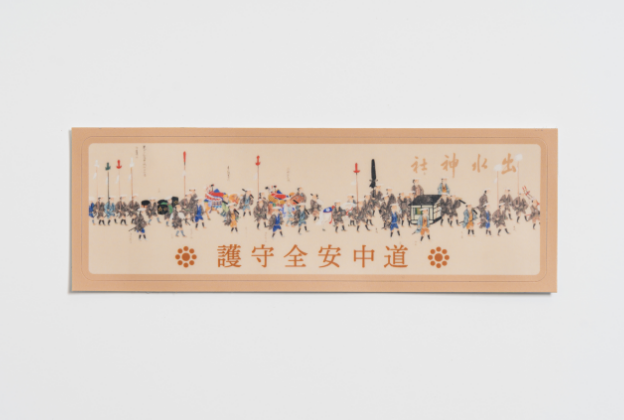 出水神社
道中安全守護